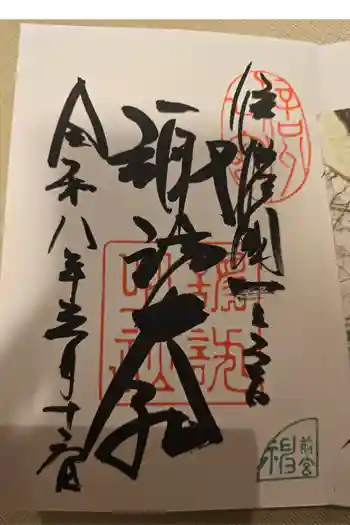 信濃國一之宮
諏訪大社
令和八年三月十
諏訪
前宮